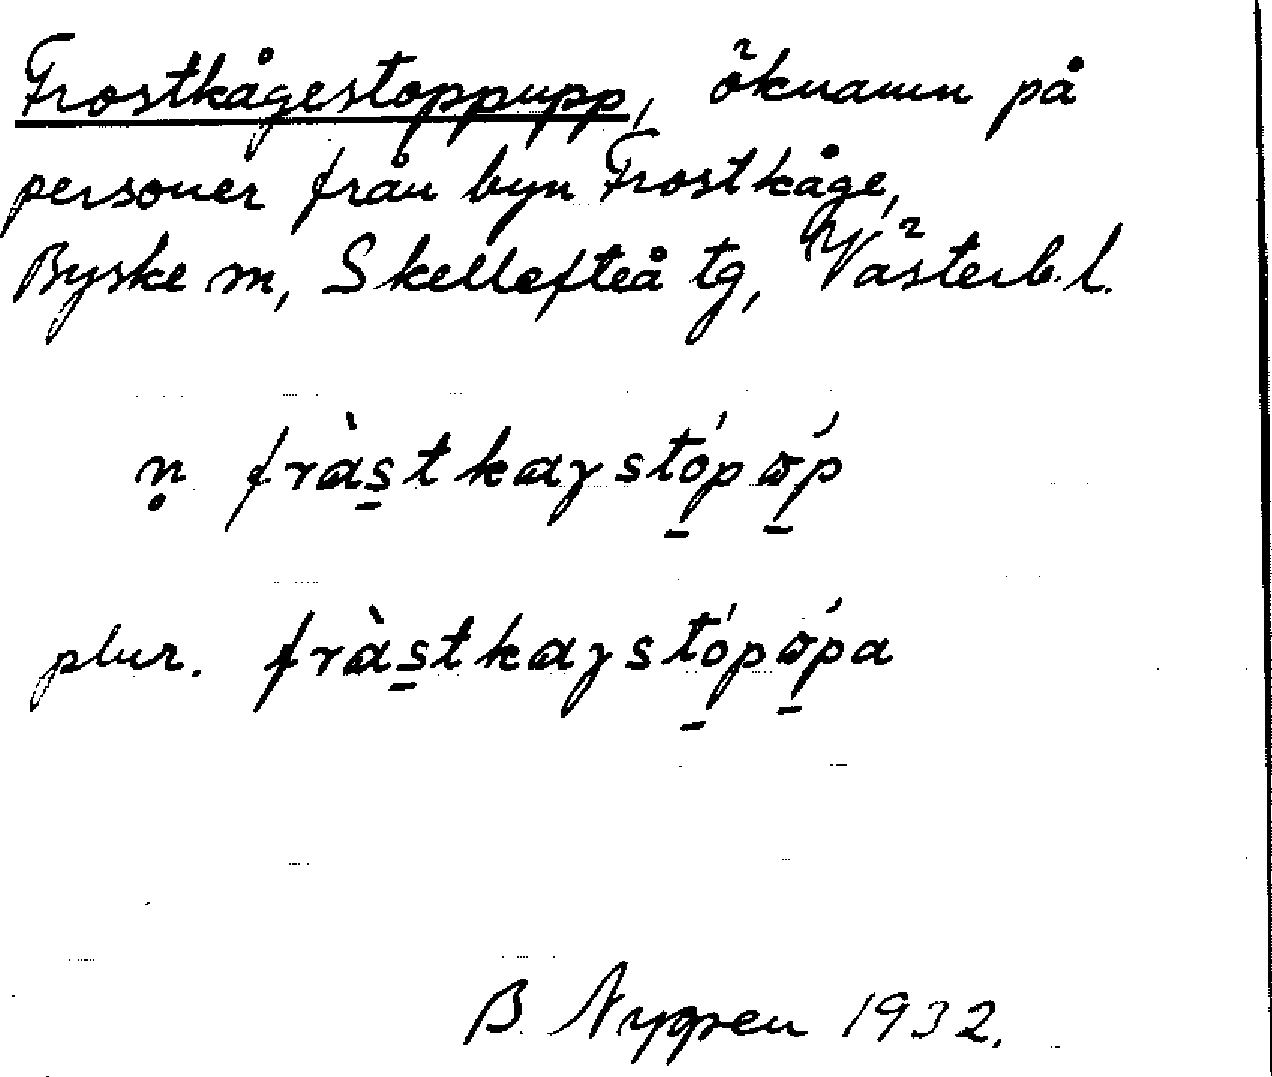 Frostkågestoppupp, öknamn på
personer från byn Frostkåge,
Byske sn, Skellefteå tg, Västerb. l.
n̥ fràs̠tkaγstóp̠ɷ́p̠
plur. fràs̠tkaγstóp̠ɷ́p̠a
B. Nygren 1932.